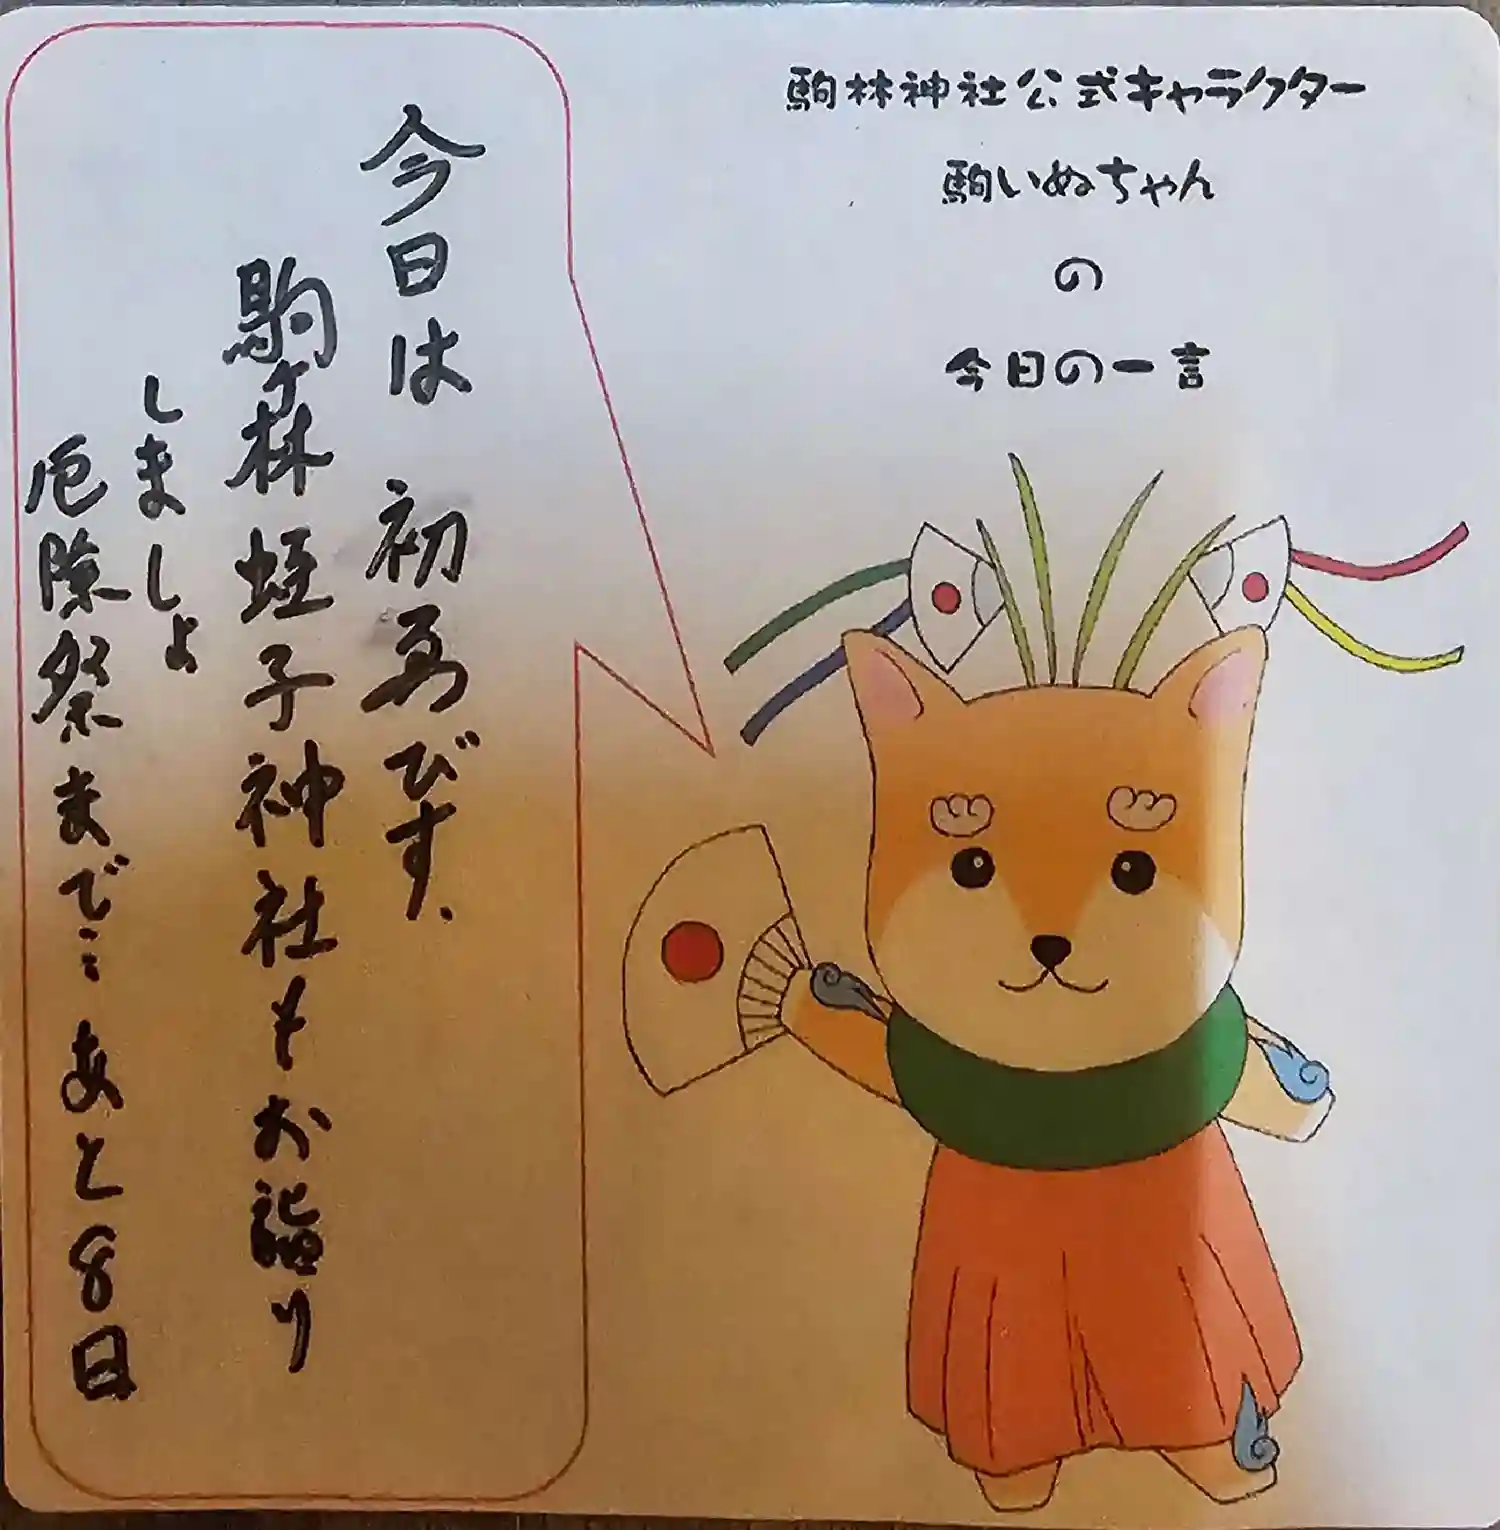 駒林神社公式キャラクター
駒いぬちゃん
の
今日の一言
今日は 初ゑびす、
駒ヶ林蛭子神社もお詣り
しましょ
厄除祭まで… あと8日